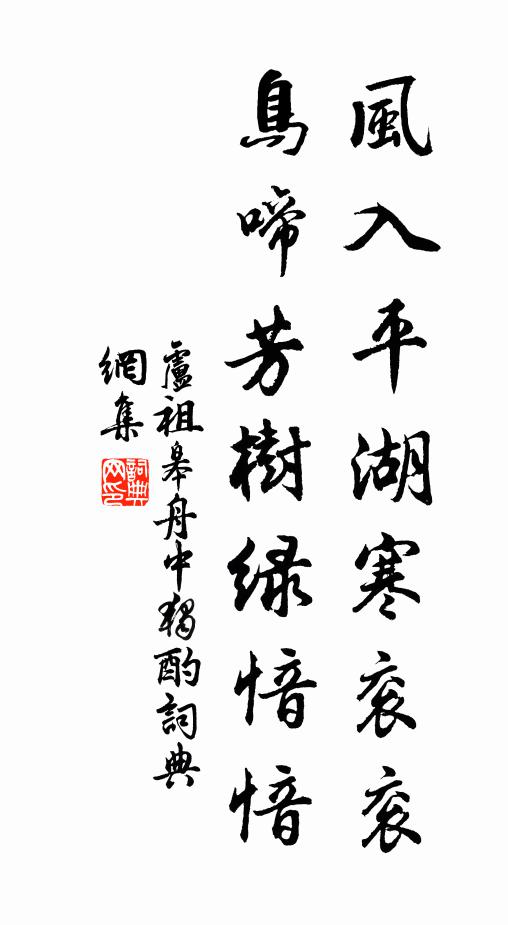 風入平湖寒衮衮
鳥啼芳樹緑愔愔
盧祖皋舟中獨酌詞典
網集
詞典
网印